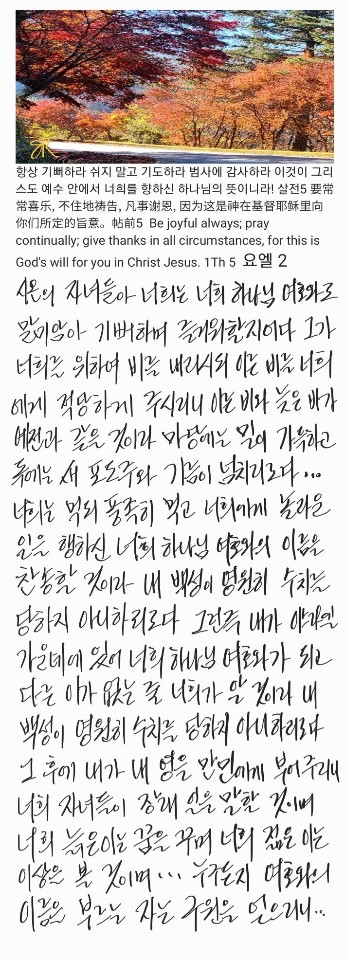 항상 기뻐하라 쉬지 말고 기도하라 범사에 감사하라 이것이 그리
스도 예수 안에서 너희를 향하신 하나님의 뜻이니라! 살전5 要常
常喜乐, 不住地祷告, 凡事谢恩, 因为这是神在基督耶稣里向
你们所定的旨意。帖前5 Be joyful always; pray
continually; give thanks in all circumstances, for this is
God's will for you in Christ Jesus. 1Th 5 요엘 2
시온의 자녀들아 너희는 너희 하나님 여호와로
말미암아 기뻐하며 즐거워할지어다 그가
너희를 위하여 비를 내리시되 이른 비를 너희
에게 적당하게 주시리니 이른 비와 늦은 비가
예전과 같을 것이라 마당에는 밀이 가득하고
독에는 새 포도주와 기름이 넘치리로다...
너희는 먹되 풍족히 먹고 너희에게 놀라운
일을 행하신 너희 하나님 여호와의 이름을
찬송할 것이라 내 백성이 영원히 수치를
당하지 아니하리로다 그런즉 내가 이스라엘
가운데에 있어 너희 하나님 여호와가 되고
다른 이가 없는 줄 너희가 알 것이라 내
백성이 영원히 수치를 당하지 아니하리로다
그 후에 내가 내 영을 만민에게 부어주리니
너희 자녀들이 장래 일을 말할 것이며
너희 늙은이는 꿈을 꾸며 너희 젊은 이는
이상을 볼 것이며... 누구든지 여호와의
이름을 부르는 자는 구원을 얻으리니...